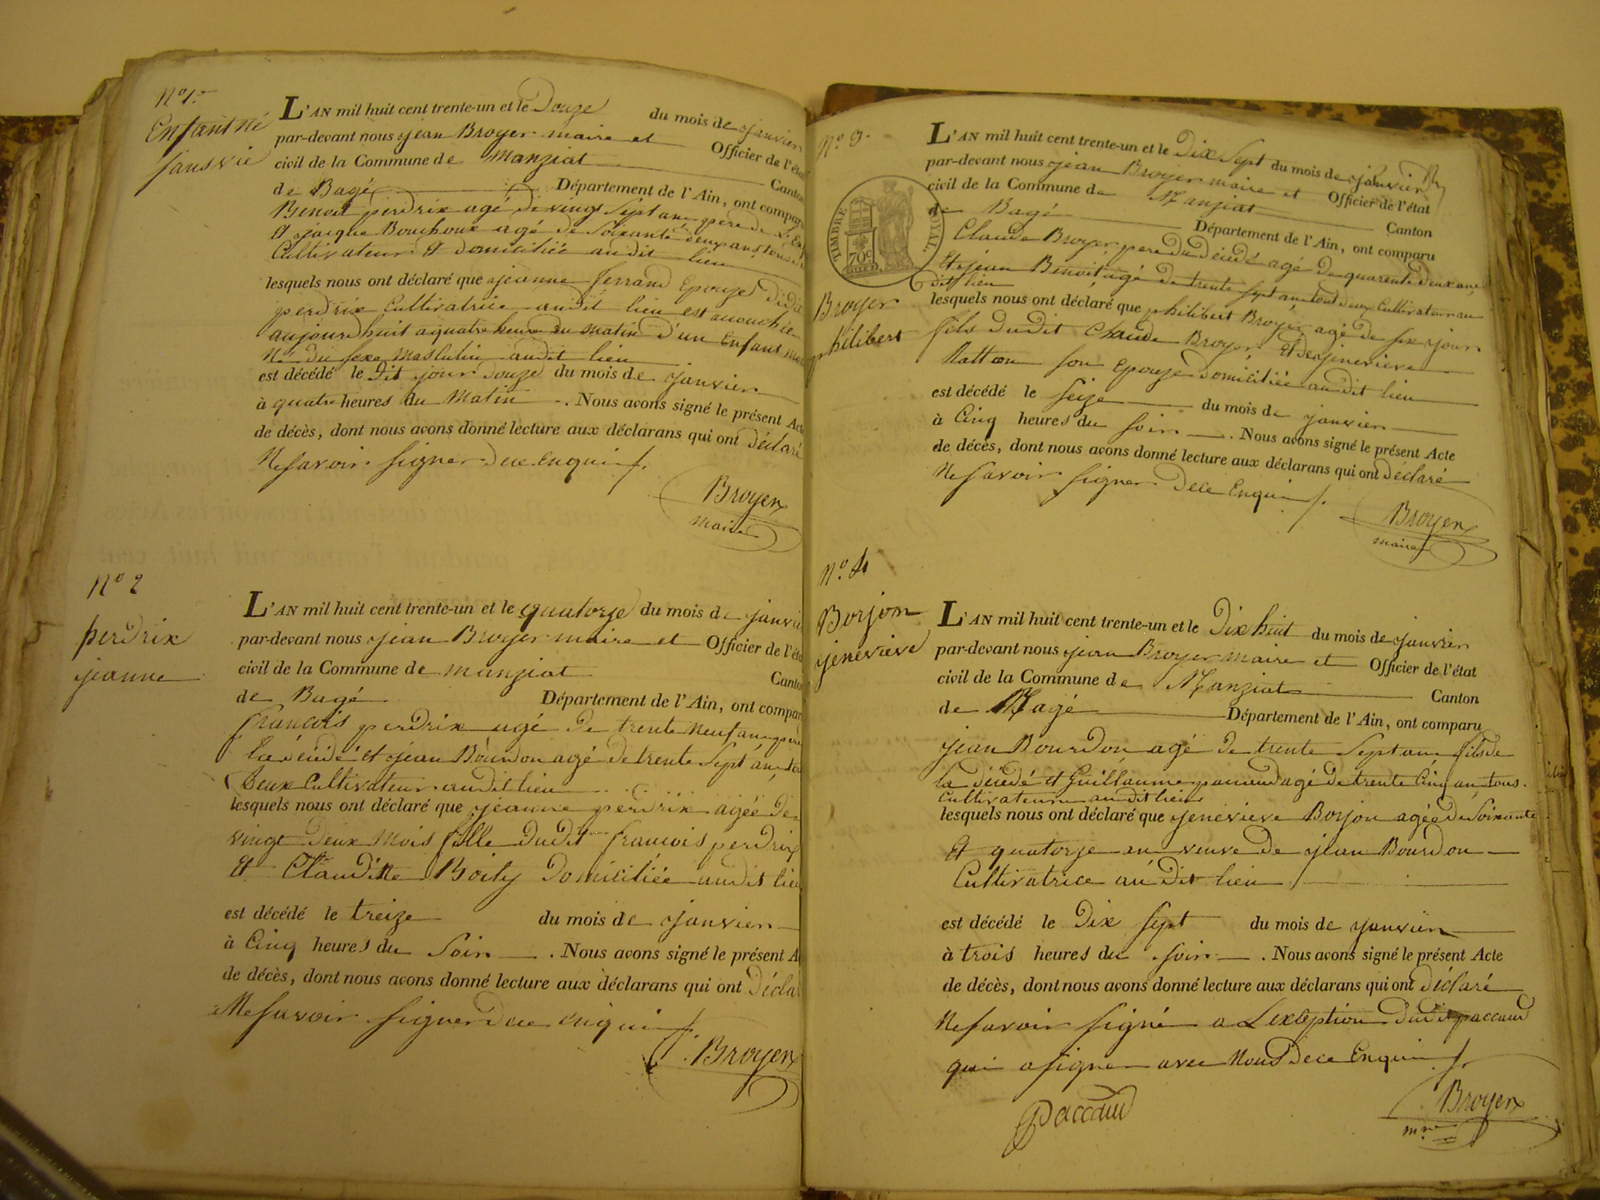 N° 1er
Enfant né
sans vie
L'AN mil huit cent trente-un et le Douze du mois de janvier
par-devant nous jean Broyer maire et Officier de l'éta
civil de la Commune de Manziat Canton
de Bagé Département de l'Ain, ont compar
Benoit perdrix agé de vingt Sept ans pere de
Et jacque Bouchoux agé de Soixante deux ans tous
Cultivateur Et domicilié audit lieu
lesquels nous ont déclaré que jeanne ferrand Epouse dudit
perdrix Cultivatrice audit lieu est accouchée
aujourdhuit a quatre heure du matin d'un Enfant
Né du sexe Masculin audit lieu
est décédé le Dit jour douze du mois de janvier
à quatre heures du Matin . Nous avons signé le présent Act
de décès, dont nous avons donné lecture aux déclarans qui ont déclaré
Ne savoir signer dece Enqui
Broyer
maire
N° 2
perdrix
jeanne
L'AN mil huit cent trente-un et le quatorze du mois de janvie
par-devant nous jean Broyer maire et Officier de l'éta
civil de la Commune de manziat Canto
de Bagé Département de l'Ain, ont compar
francois perdrix agé de trente neuf an pere
la décédé et jean Bourdon agé de trente Sept an
Deux Cultivateur audit lieu
lesquels nous ont déclaré que jeanne perdrix agée de
vingt Deux Mois fille Dudit francois perdrix
Et Claudine Boily Domiciliée audit lieu
est décédé le treize du mois de janvier
à Cinq heures du Soir . Nous avons signé le présent A
de décès, dont nous avons donné lecture aux déclarans qui ont Décla
Ne savoir signer dece enqui
Broyer
N° 3
Broyer
philibert
TIMBRE ROYAL
70c
L'AN mil huit cent trente-un et le Dix Sept du mois de janvier
par-devant nous jean Broyer maire et Officier de l'état
civil de la Commune de Manziat Canton
de Bagé Département de l'Ain, ont comparu
Claude Broyer pere du décédé agé de quarente deux ans
Et jean Benoit agé de trente sept an tous deux Cultivateur au
dit lieu
lesquels nous ont déclaré que philibert Broyer agé de six jour
fils dudit Claude Broyer Et de jenevieve
Matton son Epouse domiciliée audit lieu
est décédé le Seize du mois de janvier
à Cinq heures du soir . Nous avons signé le présent Acte
de décès, dont nous avons donné lecture aux déclarans qui ont déclaré
Ne savoir signer Dece Enqui
Broyer
maire
N° 4
Borjon
jenevieve
L'AN mil huit cent trente-un et le Dix huit du mois de janvier
par-devant nous jean Broyer maire et Officier de l'état
civil de la Commune de Manziat Canton
de Bagé Département de l'Ain, ont comparu
jean Bourdon agé de trente Sept an fils de
la décédé et Guillaume paccaud agé de trente Cinq an tous
Cultivateur audit lieu
lesquels nous ont déclaré que jenevieve Borjon agée de Soixante
Et quatorze an veuve de jean Bourdon
Cultivatrice audit lieu
est décédé le Dix sept du mois de janvier
à trois heures du soir . Nous avons signé le présent Acte
de décès, dont nous avons donné lecture aux déclarans qui ont déclaré
Ne savoir signé a Lexception dudit paccaud
qui a signer avec Nous Dece Enqui
Paccaud
Broyer
mre